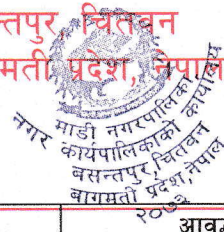 न्तपुर, चितवन
मती प्रदेश, नेपाल
माडी नगरपालिका
नगर कार्यपालिकाको कार्यालय
बसन्तपुर, चितवन
बागमती प्रदेश, नेपाल
२०७३
आव